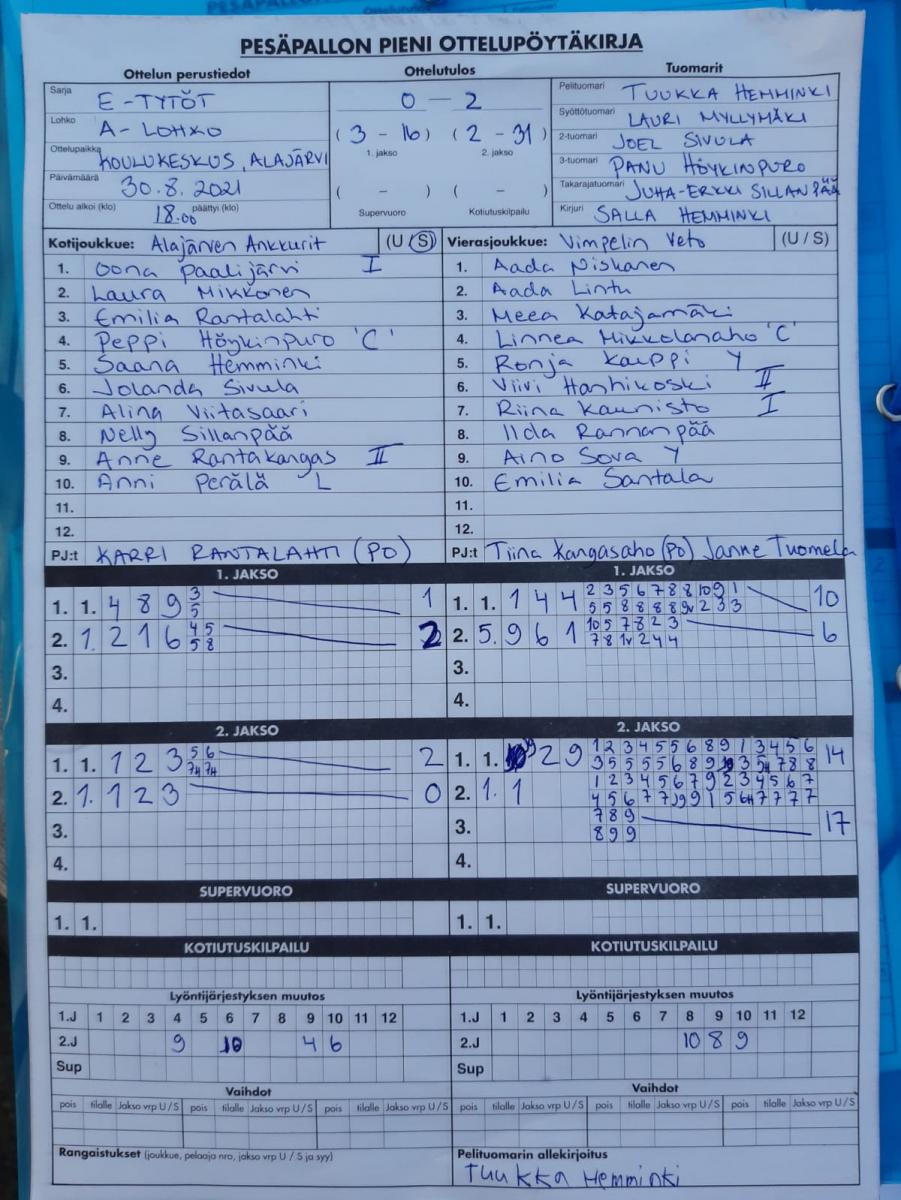 PESÄPALLON PIENI OTTELUPÖYTÄKIRJA
Ottelun perustiedot
Sarja E-TYTÖT
Lohko A-LOHKO
Ottelupaikka KOULUKESKUS, ALAJÄRVI
Päivämäärä 30.8.2021
Ottelu alkoi (klo) 18.00 päättyi (klo)
Ottelutulos
0 - 2
(3 - 16) (2 - 31)
1. jakso 2. jakso
( - ) ( - )
Supervuoro Kotiutuskilpailu
Tuomarit
Pelituomari TUUKKA HEMMINKI
Syöttötuomari LAURI MYLLYMÄKI
2-tuomari JOEL SIVULA
3-tuomari PANU HÖYKINPURO
Takarajatuomari JUHA-ERKKI SILLANPÄÄ
Kirjuri SALLA HEMMINKI
Kotijoukkue: Alajärven Ankkurit (U / S)
1. Oona Paalijärvi I
2. Laura Mikkonen
3. Emilia Rantalahti
4. Peppi Höykinpuro 'C'
5. Saana Hemminki
6. Jolanda Sivula
7. Alina Viitasaari
8. Nelly Sillanpää
9. Anne Rantakangas II
10. Anni Perälä L
11.
12.
PJ:t KARRI RANTALAHTI (PO)
Vierasjoukkue: Vimpelin Veto (U / S)
1. Aada Niskanen
2. Aada Lintu
3. Meea Katajamäki
4. Linnea Mikkolanaho 'C'
5. Ronja Kauppi Y
6. Viivi Hanhikoski II
7. Riina Kaunisto I
8. Ilda Rannanpää
9. Aino Sova Y
10. Emilia Santala
11.
12.
PJ:t Tiina Kangasaho (PO) Janne Tuomela
1. JAKSO
1. 1. 4 8 9 3 1
5
2. 1. 2 1 6 4 5 2
5 8
3.
4.
1. JAKSO
1. 1. 1 4 4 2 3 5 6 7 8 8 10 9 1 10
5 5 8 8 8 8 9v 2 3 3
2. 5. 9 6 1 10 5 7 8 2 3 6
7 8 1v 2 4 4
3.
4.
2. JAKSO
1. 1. 1 2 3 5 6 2
7H 7H
2. 1. 1 2 3 0
3.
4.
2. JAKSO
1. 1. 2 9 1 2 3 4 5 5 6 8 9 1 3 4 5 6 14
3 5 5 5 5 6 8 9 3 7 8 8
2. 1. 1 1 2 3 4 5 6 7 9 2 3 4 5 6 7
4 5 6 7 7 9 1 5 6H 7 7 7 7
3. 7 8 9 17
8 9 9
4.
SUPERVUORO
1. 1.
SUPERVUORO
1. 1.
KOTIUTUSKILPAILU
KOTIUTUSKILPAILU
Lyöntijärjestyksen muutos
1.J 1 2 3 4 5 6 7 8 9 10 11 12
2.J 9 10 4 6
Sup
Lyöntijärjestyksen muutos
1.J 1 2 3 4 5 6 7 8 9 10 11 12
2.J 10 8 9
Sup
Vaihdot
pois tilalle Jakso vrp U / S pois tilalle Jakso vrp U / S pois tilalle Jakso vrp U / S
Vaihdot
pois tilalle Jakso vrp U / S pois tilalle Jakso vrp U / S pois tilalle Jakso vrp U / S
Rangaistukset (joukkue, pelaaja nro, jakso vrp U / S ja syy)
Pelituomarin allekirjoitus
Tuukka Hemminki